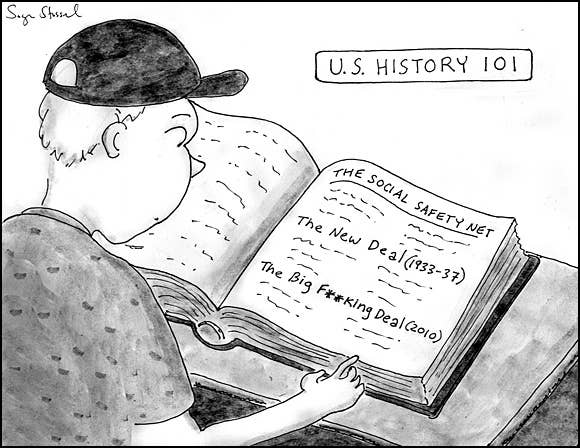 Sage Stossel
U.S. HISTORY 101
THE SOCIAL SAFETY NET
The New Deal (1933-37)
The Big F**king Deal (2010)